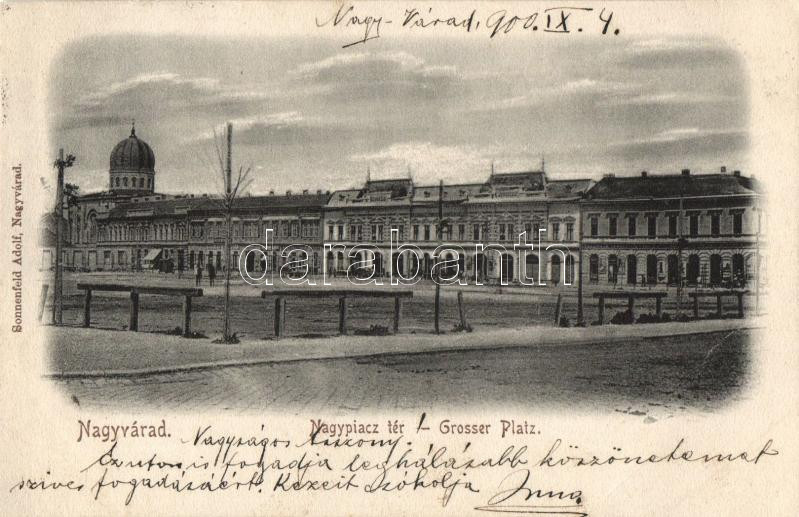 Nagy-Várad, 900.IX.4.
Sonnenfeld Adolf, Nagyvárad.
darabanth.com
Nagyvárad.
Nagypiacz tér – Grosser Platz.
Nagyságos Asszony!
Ezuton is fogadja leghálásabb köszönetemet
szives fogadásáért. Kezeit csókolja